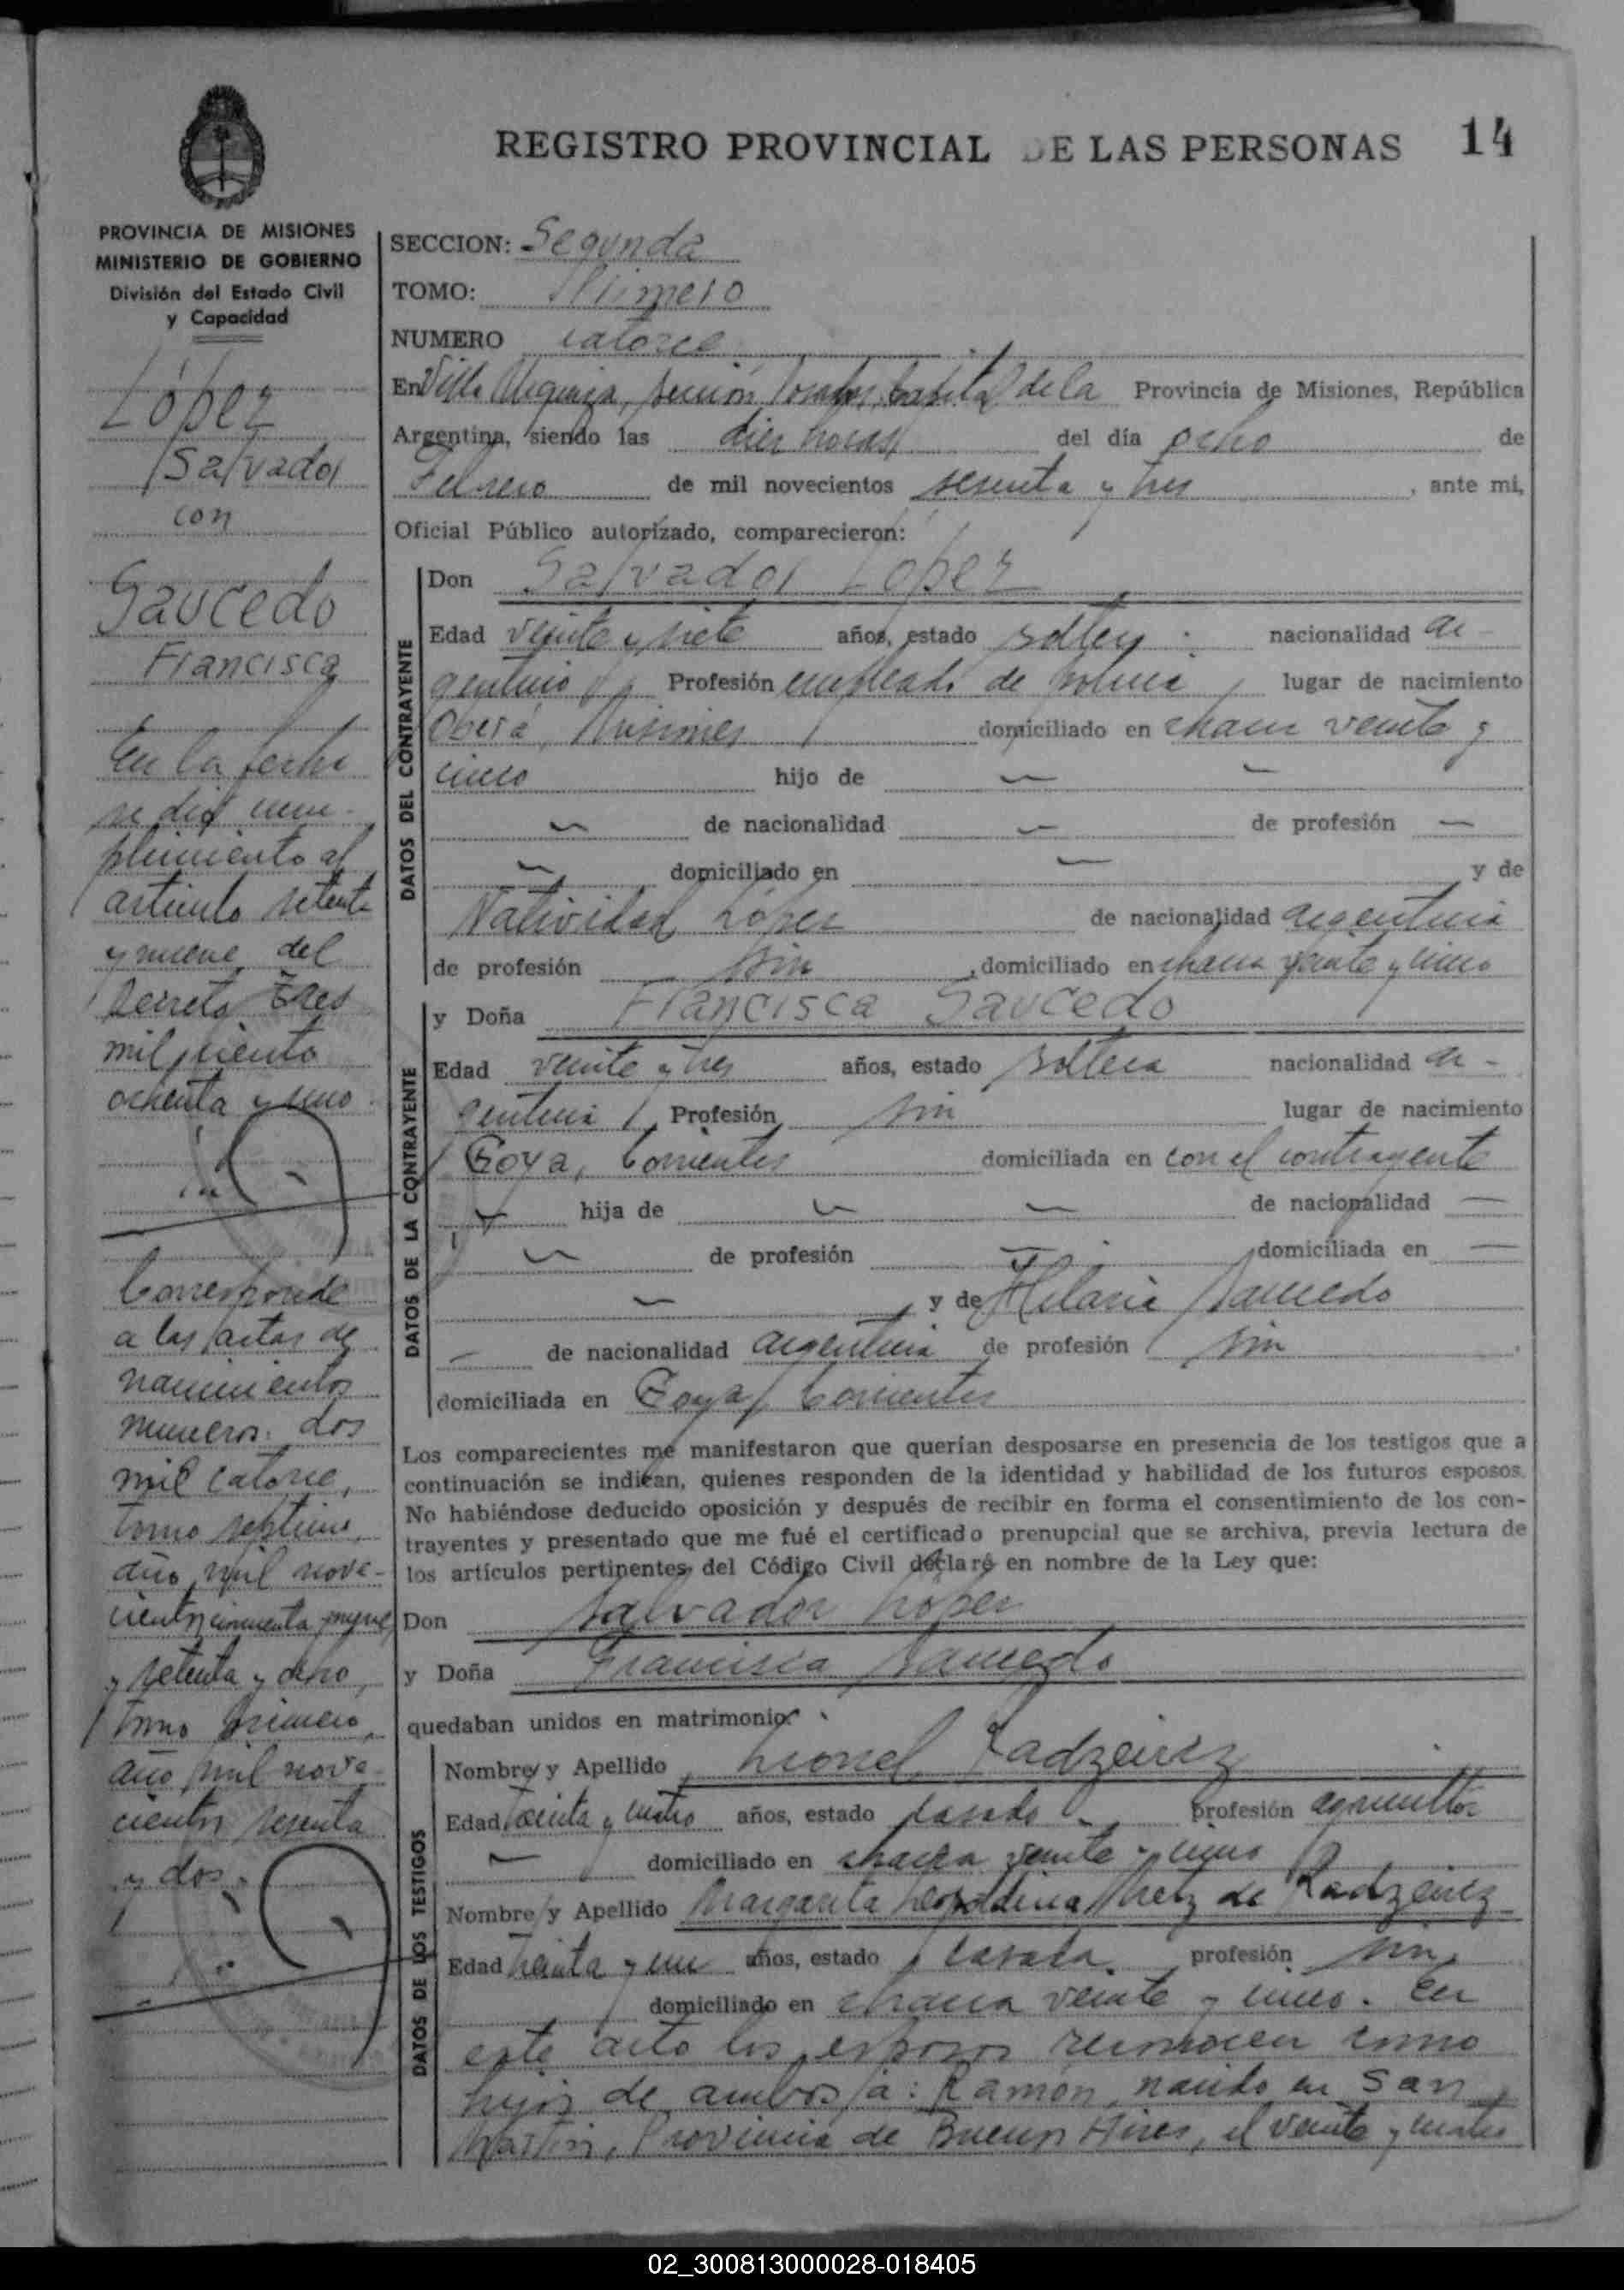 REGISTRO PROVINCIAL DE LAS PERSONAS 14
PROVINCIA DE MISIONES
MINISTERIO DE GOBIERNO
División del Estado Civil
y Capacidad
López
Salvador
con
Saucedo
Francisca
En la fecha
se dió cum-
plimiento al
artículo setenta
y nueve del
Decreto Tres
mil ciento
ochenta y uno
Corresponde
a las actas de
nacimientos
numeros: dos
mil catorce,
tomo séptimo,
año mil nove-
cientos cincuenta y nueve
y setenta y ocho,
tomo primero,
año mil nove-
cientos sesenta
y dos.
SECCION: Segunda
TOMO: Primero
NUMERO catorce
En Villa Urquiza, sección Posadas, Capital de la Provincia de Misiones, República
Argentina, siendo las diez horas del día ocho de
Febrero de mil novecientos sesenta y tres, ante mi,
Oficial Público autorizado, comparecieron:
DATOS DEL CONTRAYENTE
Don Salvador López
Edad veinte y siete años, estado soltero nacionalidad ar-
gentino Profesión empleado de policía lugar de nacimiento
Oberá, Misiones domiciliado en chacra veinte y
cinco hijo de — —
— de nacionalidad — de profesión —
— domiciliado en — y de
Natividad López de nacionalidad argentina
de profesión sin, domiciliado en chacra veinte y cinco
DATOS DE LA CONTRAYENTE
y Doña Francisca Saucedo
Edad veinte y tres años, estado soltera nacionalidad ar-
gentina Profesión sin lugar de nacimiento
Goya, Corrientes domiciliada en con el contrayente
— hija de — — de nacionalidad —
— de profesión — domiciliada en —
— y de Hilaria Saucedo
— de nacionalidad argentina de profesión sin
domiciliada en Goya, Corrientes
Los comparecientes me manifestaron que querían desposarse en presencia de los testigos que a
continuación se indican, quienes responden de la identidad y habilidad de los futuros esposos.
No habiéndose deducido oposición y después de recibir en forma el consentimiento de los con-
trayentes y presentado que me fué el certificado prenupcial que se archiva, previa lectura de
los artículos pertinentes del Código Civil declaré en nombre de la Ley que:
Don Salvador López
y Doña Francisca Saucedo
quedaban unidos en matrimonio.
DATOS DE LOS TESTIGOS
Nombre y Apellido Leonel Radzeiriz
Edad treinta y cuatro años, estado casado profesión agricultor
— domiciliado en chacra veinte y cinco
Nombre y Apellido Margarita Leopoldina de Radzeiriz
Edad treinta y un años, estado casada profesión sin,
domiciliado en chacra veinte y cinco. En
este acto los esposos reconocen como
hijos de ambos a: Ramón, nacido en San
Martín, Provincia de Buenos Aires, el veinte y cuatro
02_300813000028-018405